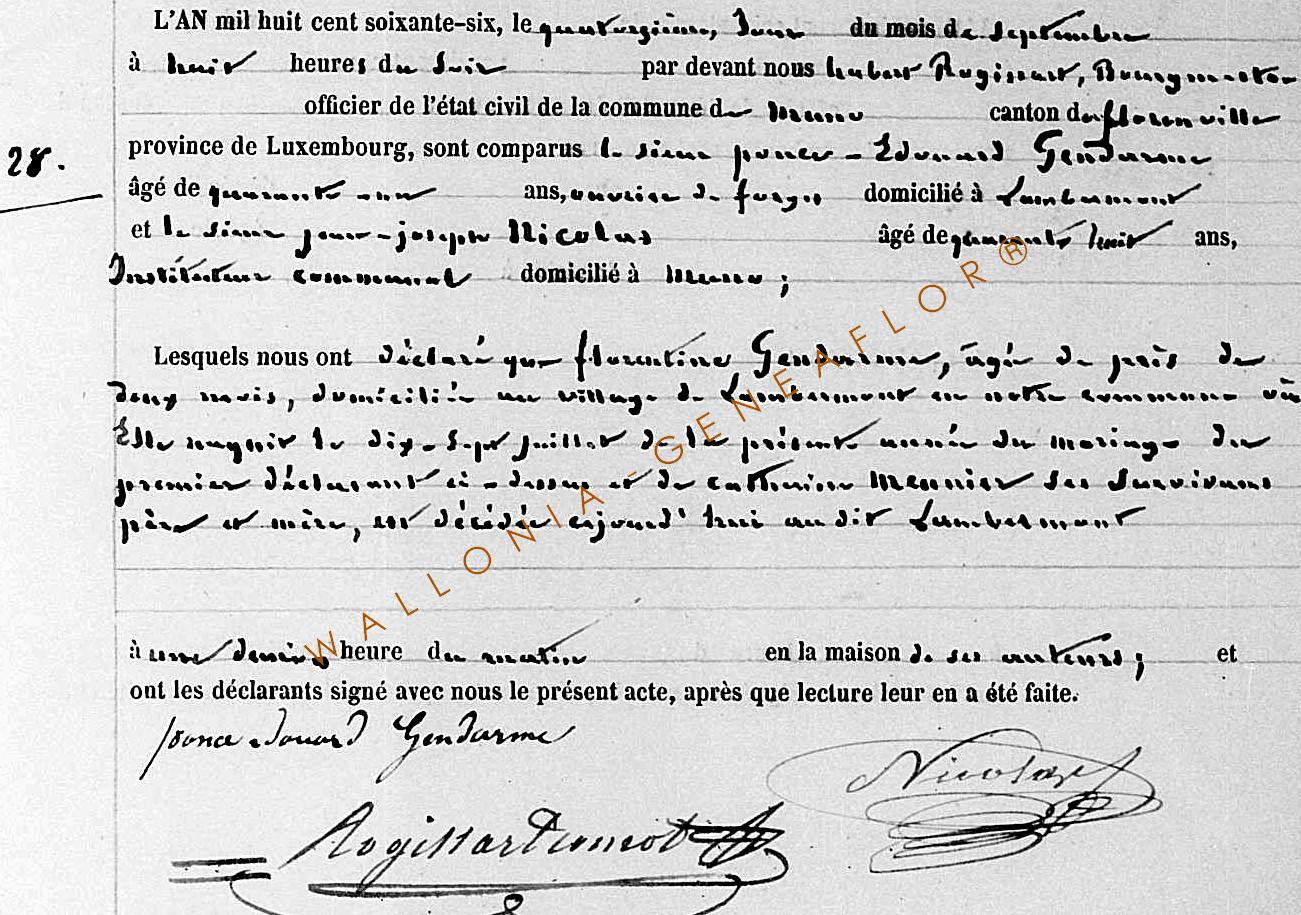 L'AN mil huit cent soixante-six, le quatorzième, Jour du mois de Septembre
à huit heures du Soir par devant nous hubert Rogissart, Bourgmestre
officier de l'état civil de la commune de muno canton de florenville
28.
province de Luxembourg, sont comparus le sieur ponce-Edouard Gendarme
âgé de quarante-un ans, ouvrier de forges domicilié à Lambermont
et le sieur jean-joseph Nicolas âgé de quarante huit ans,
Instituteur communal domicilié à muno;
Lesquels nous ont déclaré que florentine Gendarme, âgée de près de
deux mois, domiciliée au village de Lambermont en notre commune où
Elle naquit le dix-Sept juillet de la présente année du mariage du
premier déclarant ci-dessus et de catherine Meunier Ses Survivans
père et mère, est décédée aujourd'hui audit Lambermont
à une demie heure du matin en la maison de ses auteurs; et
ont les déclarants signé avec nous le présent acte, après que lecture leur en a été faite.
ponce edouard Gendarme
Nicolas
WALLONIA-GENEAFLOR®